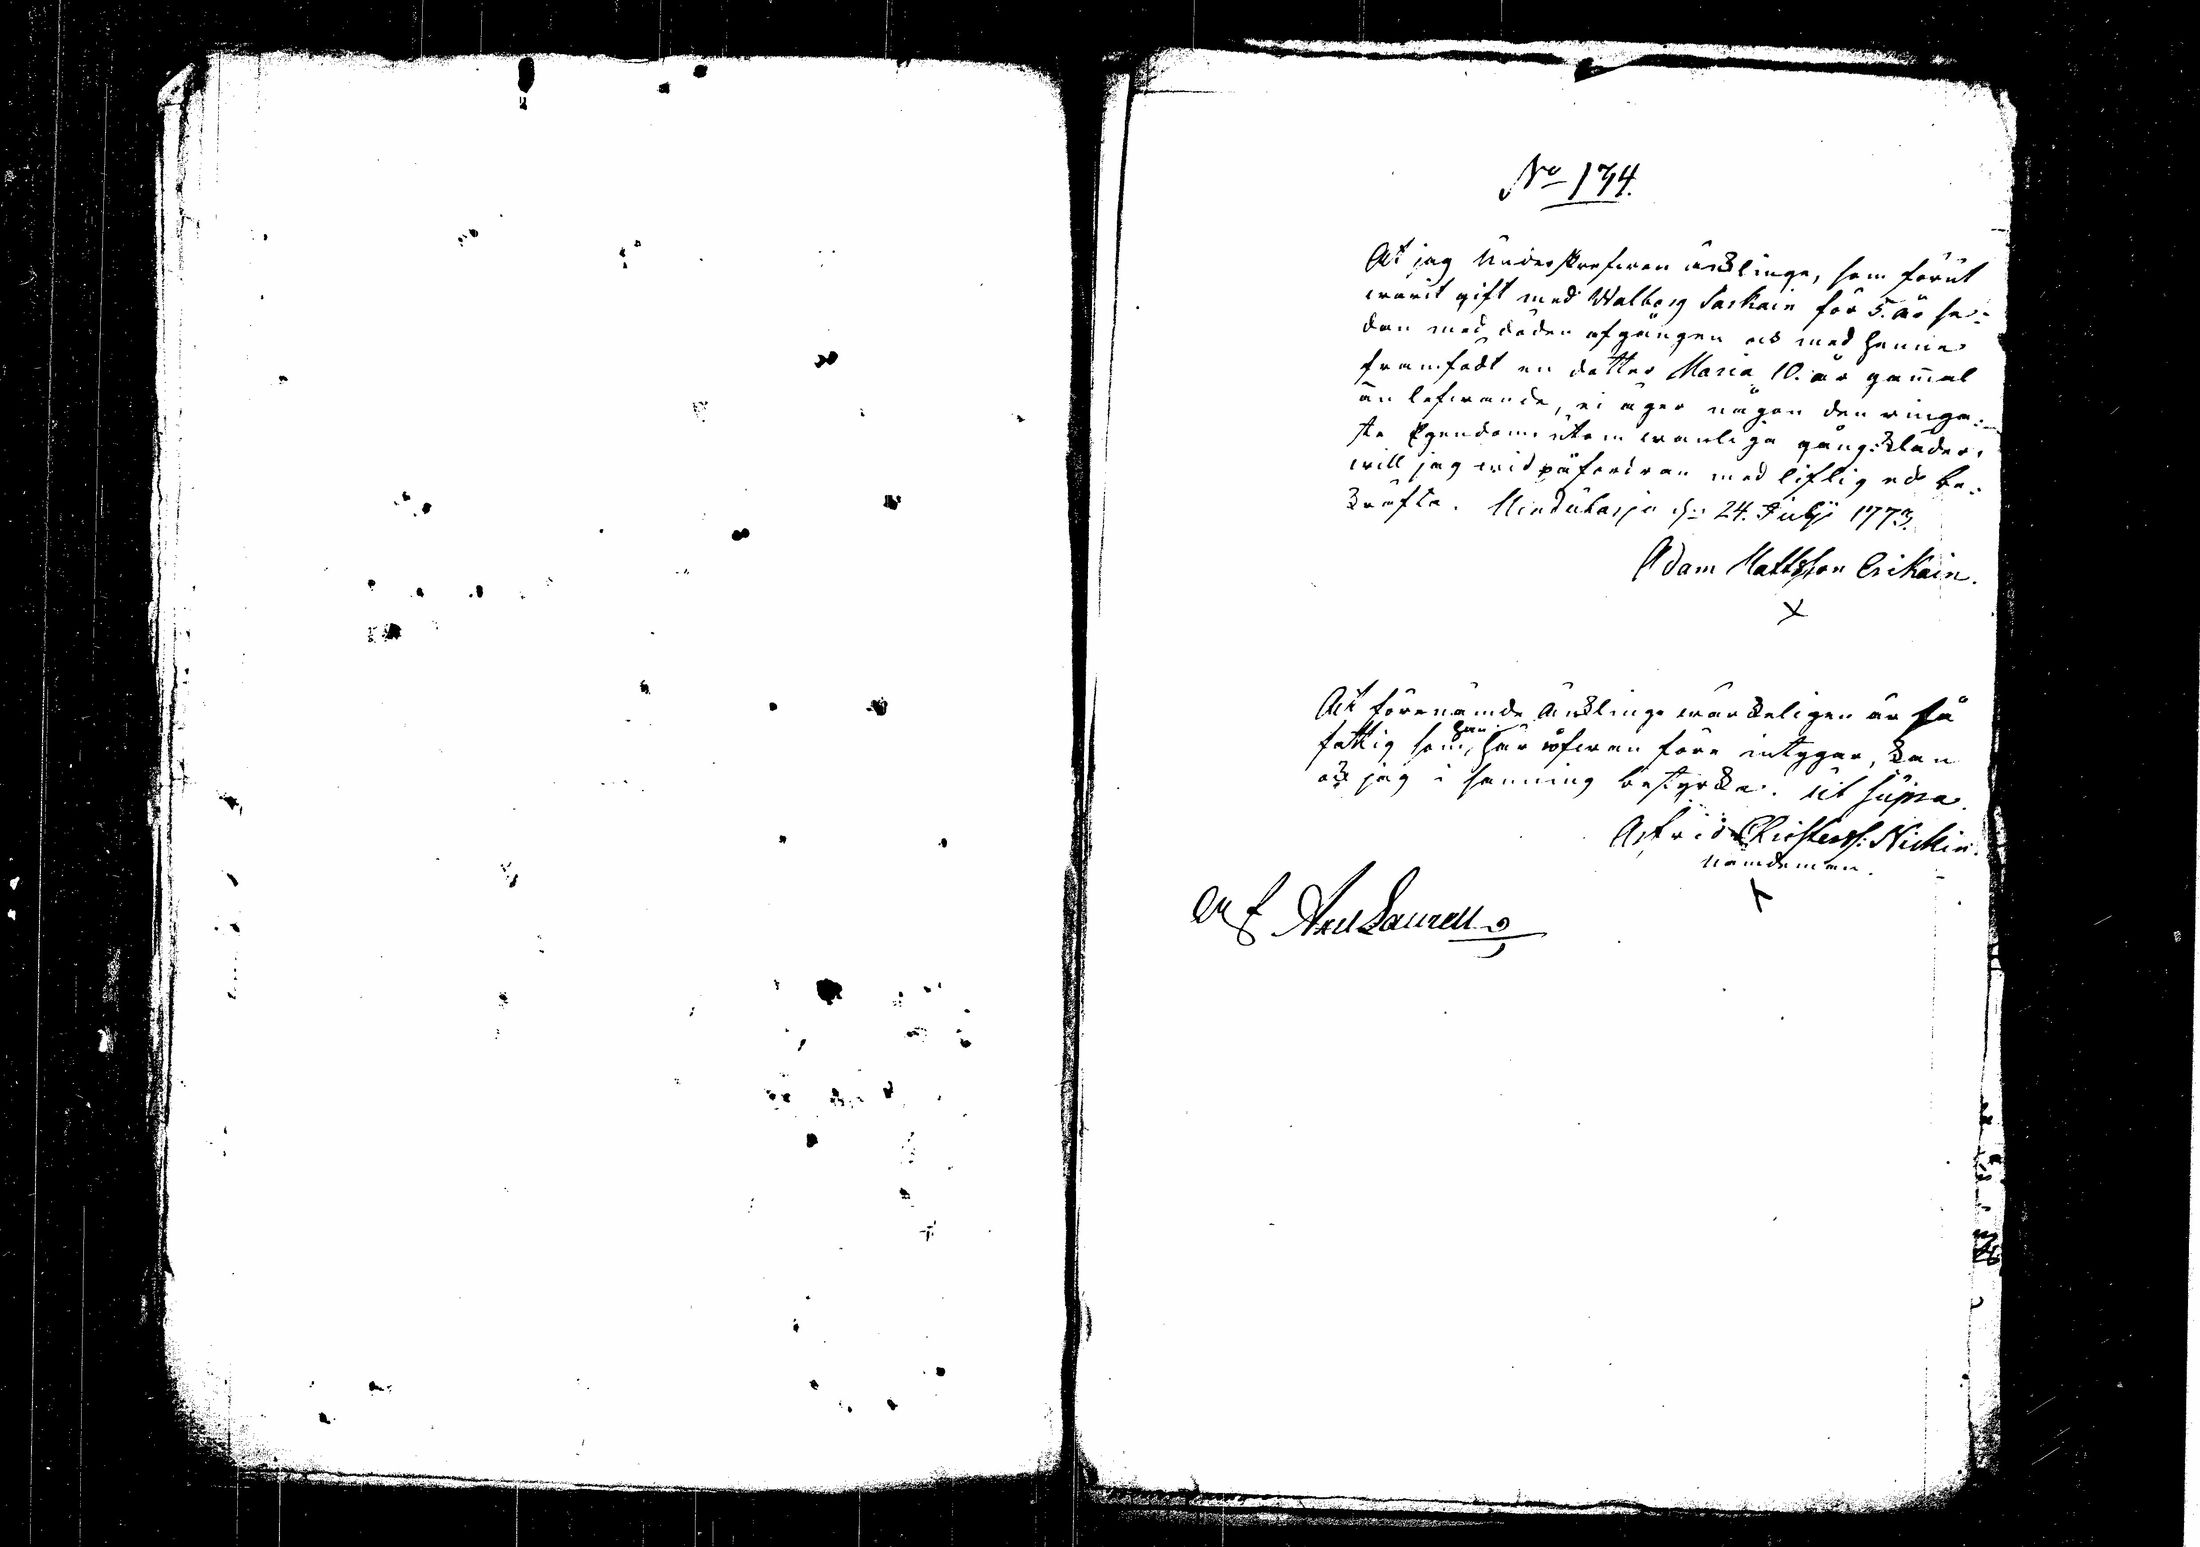 No 174.
At jag Underskrefwen änklinge, som förut
warit gift med Walborg Sarkain för 5. år se-
dan med döden afgången och med henne
framfödt en dotter Maria 10. år gammal
än lefwande, ei äger någon den ringa-
ste Egendom utom wanliga gång-kläder,
will jag wid påfordran med liflig ed be-
kräfta. d: 24. Julii 1773.
Adam Mattsson Erikain.
X
At förenämde Änklinge wärkeligen är så
fattig som han här ofwan före intygar, kan
ock jag i sanning bestyrka. ut supra.
Christerss: Nickin.
nämdeman.
X
Axel Laurell